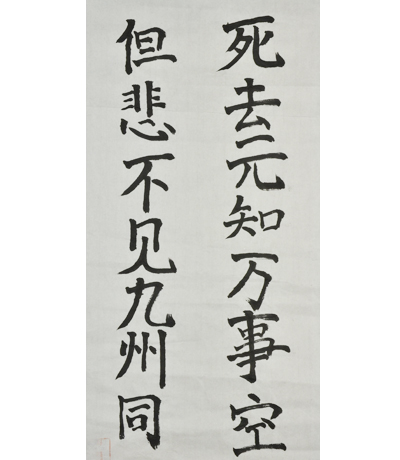 死去元知万事空
但悲不见九州同